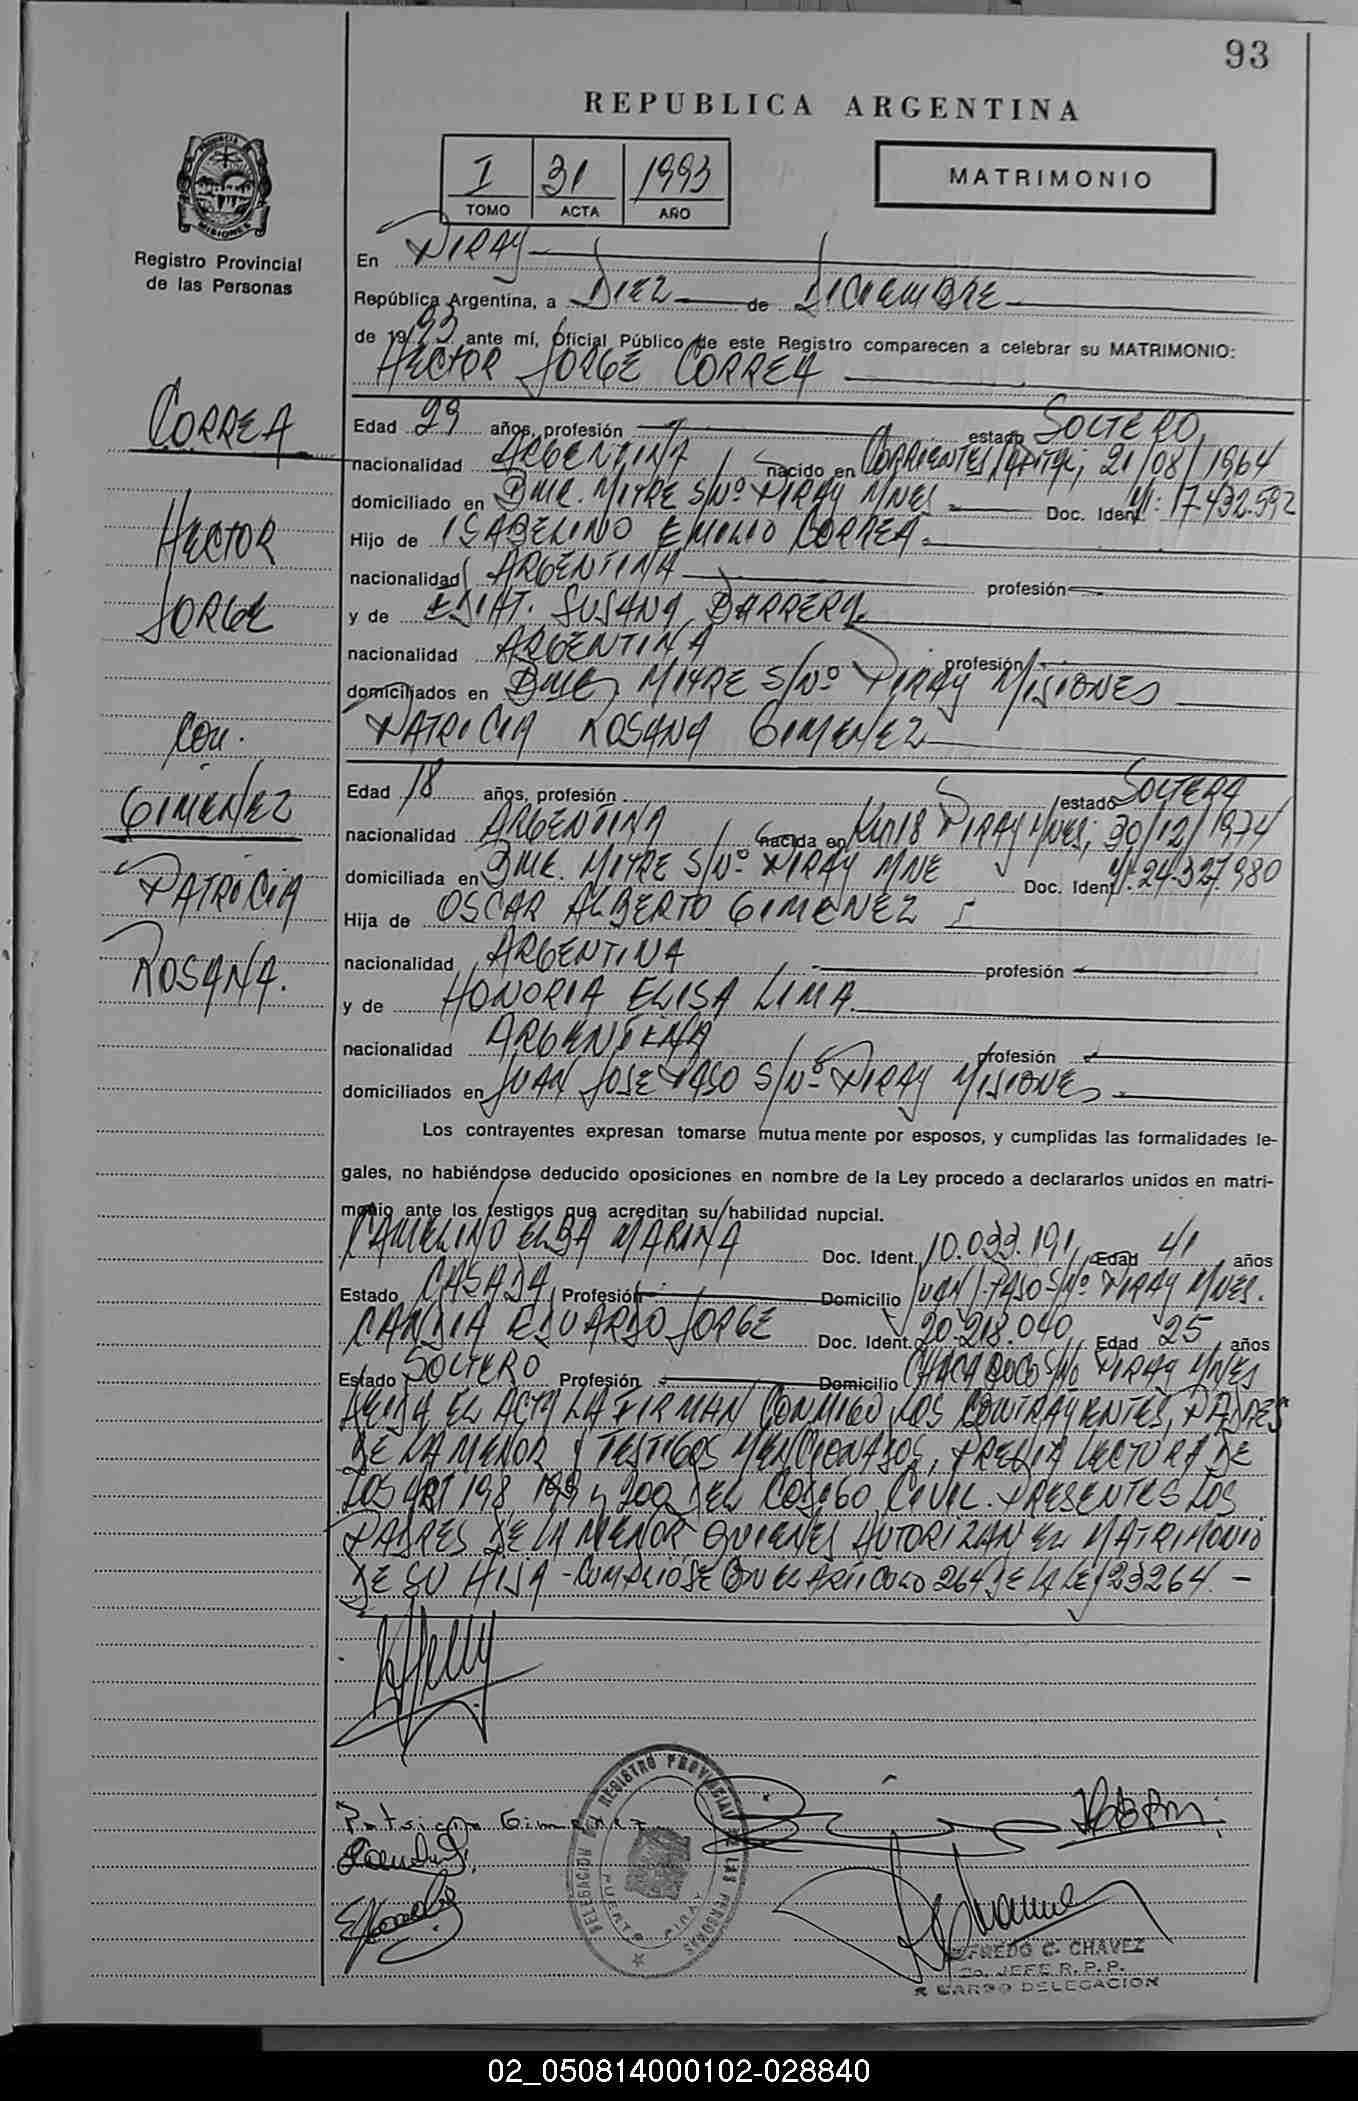 93
REPUBLICA ARGENTINA
I 31 1993
TOMO ACTA AÑO
MATRIMONIO
PROVINCIA DE MISIONES
Registro Provincial
de las Personas
CORREA
HECTOR
JORGE
con.
GIMENEZ
PATRICIA
ROSANA.
En PIRAY
República Argentina, a DIEZ de DICIEMBRE
de 1993 ante mí, Oficial Público de este Registro comparecen a celebrar su MATRIMONIO:
HECTOR JORGE CORREA
Edad 29 años, profesión estado SOLTERO
nacionalidad ARGENTINA nacido en CORRIENTES/CAPITAL; 21/08/1964
domiciliado en BME. MITRE S/Nº PIRAY MNES Doc. Ident. M: 17.432.592
Hijo de ISABELINO EMILIO CORREA
nacionalidad ARGENTINA profesión
y de EDIHT. SUSANA BARRERA.
nacionalidad ARGENTINA profesión
domiciliados en BME MITRE S/Nº PIRAY MISIONES
PATRICIA ROSANA GIMENEZ
Edad 18 años, profesión estado SOLTERA
nacionalidad ARGENTINA nacida en Km 18 PIRAY MNES; 30/12/1974
domiciliada en BME. MITRE S/Nº PIRAY MNE Doc. Ident. 24.327.980
Hija de OSCAR ALBERTO GIMENEZ
nacionalidad ARGENTINA profesión
y de HONORIA ELISA LIMA.
nacionalidad ARGENTINA profesión
domiciliados en JUAN JOSE PASO S/Nº PIRAY MISIONES
Los contrayentes expresan tomarse mutuamente por esposos, y cumplidas las formalidades le-
gales, no habiéndose deducido oposiciones en nombre de la Ley procedo a declararlos unidos en matri-
monio ante los testigos que acreditan su habilidad nupcial.
CAMELINO ELBA MARINA Doc. Ident. 10.033.191 Edad 41 años
Estado CASADA Profesión Domicilio JUAN J. PASO S/Nº PIRAY MNES.
CANDIA EDUARDO JORGE Doc. Ident. 20.218.040 Edad 25 años
Estado SOLTERO Profesión Domicilio CHACABUCO S/Nº PIRAY MNES
LEIDA EL ACTA LA FIRMAN CONMIGO LOS CONTRAYENTES, PADRES
DE LA MENOR Y TESTIGOS MENCIONADOS, PREVIA LECTURA DE
LOS ART 198 199 y 200 DEL CODIGO CIVIL. PRESENTES LOS
PADRES DE LA MENOR QUIENES AUTORIZAN EL MATRIMONIO
DE SU HIJA - CUMPLIOSE CON EL ARTICULO 264 DE LA LEY 23264. -
Patricia Gimenez
DELEGACION REGISTRO PROVINCIAL DE LAS PERSONAS
PUERTO PIRAY
ALFREDO C. CHAVEZ
JEFE R. P. P.
A CARGO DELEGACION
02_050814000102-028840